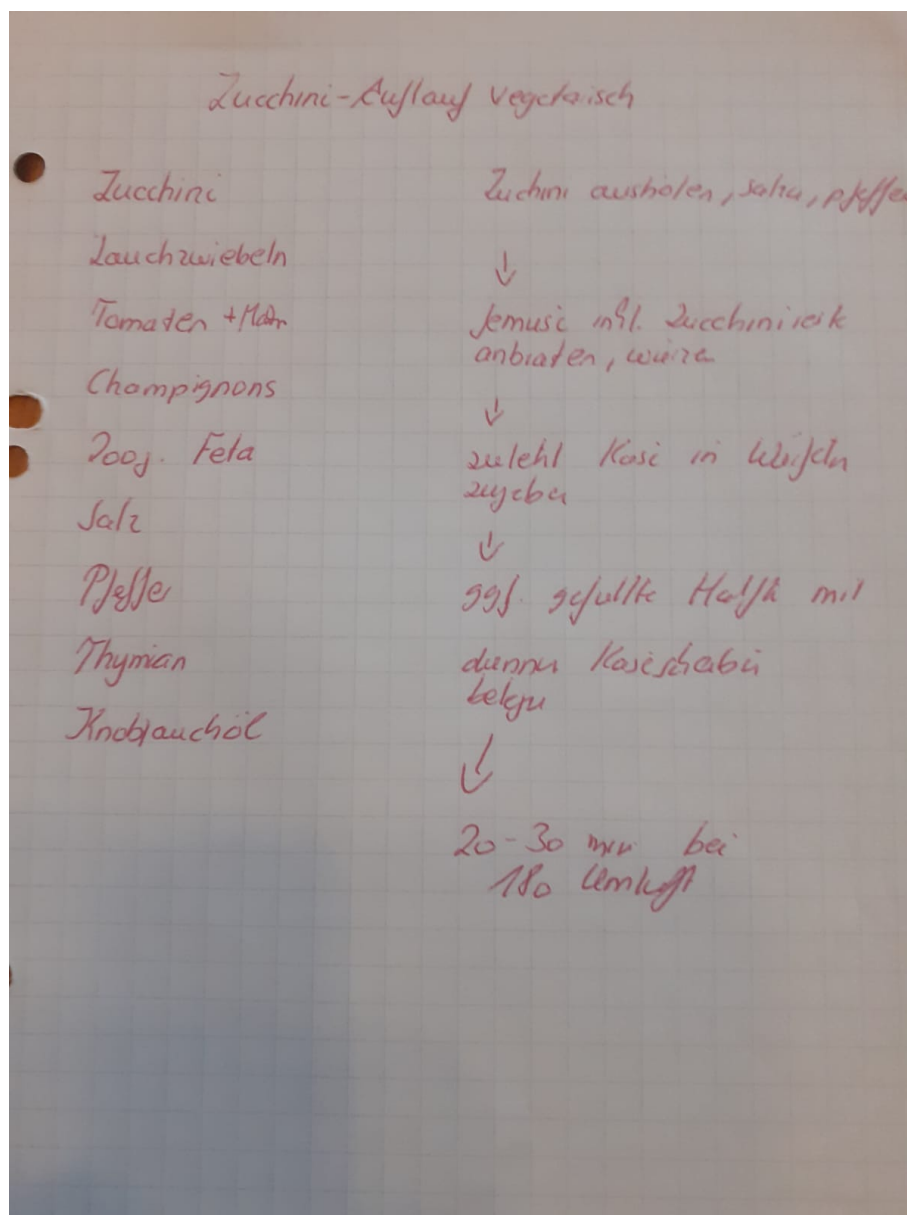 Zucchini-Auflauf vegetarisch
Zucchini
Lauchzwiebeln
Tomaten +
Champignons
200g. Feta
Salz
Pfeffe
Thymian
Knoblauchöl
Zuchini aushölen, salzen, pfeffer
↓
Jemüse inkl. Zucchinireste
anbraten, würzen
↓
zuletzt Käse in Würfeln
zugeben
↓
ggf. gefüllte Hälfte mit
dünnen Käsescheiben
belegen
↓
20-30 min bei
180 Umluft